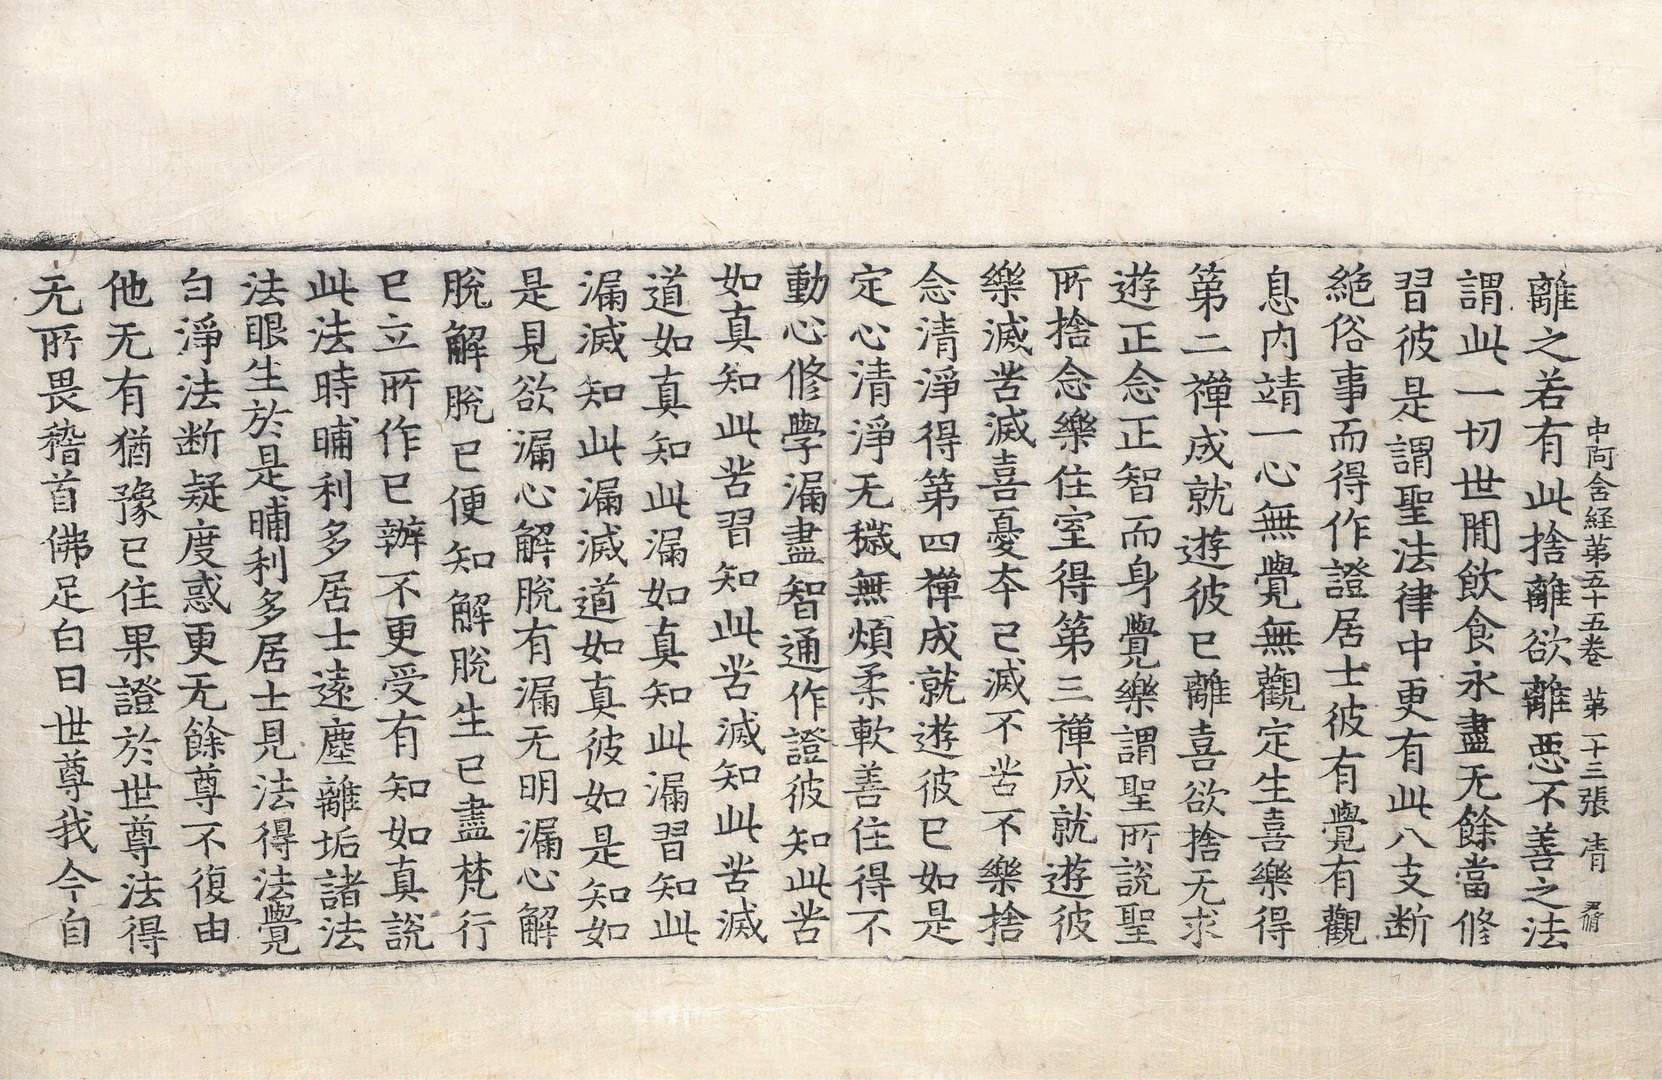 中阿含経第五十五卷 第二十三張 凊
離之若有此捨離欲離惡不善之法
謂此一切世閒飮食永盡无餘當修
習彼是謂聖法律中更有此八支断
絶俗事而得作證居士彼有覺有觀
息內靖一心無覺無觀定生喜樂得
第二禪成就遊彼已離喜欲捨无求
遊正念正智而身覺樂謂聖所說聖
所捨念樂住室得第三禪成就遊彼
樂滅苦滅喜憂夲已滅不苦不樂捨
念清淨得第四禪成就遊彼已如是
定心清淨无穢無煩柔軟善住得不
動心修學漏盡智通作證彼知此苦
如真知此苦習知此苦滅知此苦滅
道如真知此漏如真知此漏習知此
漏滅知此漏滅道如真彼如是知如
是見欲漏心解脫有漏无明漏心解
脫解脫已便知解脫生已盡梵行
已立所作已辦不更受有知如真說
此法時晡利多居士遠塵離垢諸法
法眼生於是晡利多居士見法得法覺
白淨法断疑度惑更无餘尊不復由
他无有猶豫已住果證於世尊法得
无所畏稽首佛足白曰世尊我今自